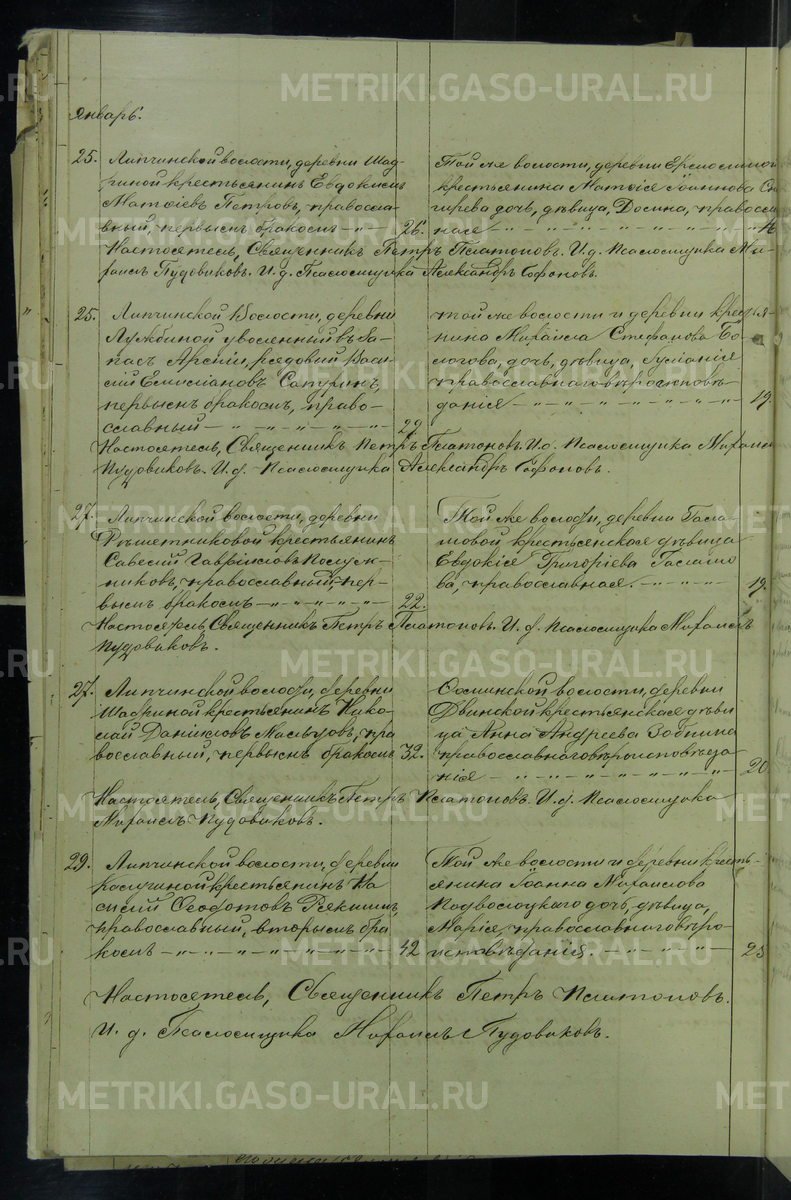 Январь.
25. Липчинской волости, деревни Шад-
риной крестьянинъ Евдокимъ
Матѳіевъ Петровъ, правосла-
вный, первымъ бракомъ 26.
Той же волости, деревни Ермолиной
крестьянина Матѳія Іоаннова
дочь, дѣвица, Домна, правосла-
вная
Настоятель, Священникъ Петръ Платоновъ. И. д. Псаломщика Ми-
хаилъ Пудовиковъ. И. д. Псаломщика Александръ Софоновъ.
25. Липчинской волости, деревни
Лужбиной уволенный въ за-
пасъ Арміи, рядовой Васи-
лій Емиліановъ Сатуринъ,
первымъ бракомъ, право-
славный 29
той же волости и деревни кресья-
нина Михаила Стефанова Бо-
логова, дочь, дѣвица, Іуліанія
православнаго вѣроисповѣ-
данія 19.
Настоятель, Священникъ Петръ Платоновъ. И. д. Псаломщика Михаилъ
Пудовиковъ. И. д. Псаломщика Александръ Софоновъ.
27. Липчинской волости, деревни
Рѣшетниковой крестьянинъ
Савелій Гавріиловъ
православный, пер-
вымъ бракомъ 22.
Той же волости, деревни
крестьянская дѣвица
Евдокія Григоріева
православная. 19.
Настоятель, Священникъ Петръ Платоновъ. И. д. Псаломщика Михаилъ
Пудовиковъ.
27. Липчинской волости, деревни
Шадриной крестьянинъ Нико-
лай Даніиловъ Мальцовъ, пра
вославный, первымъ бракомъ 32.
волости, деревни
Двинской крестьянская дѣви
ца Анна Андреева Бабкина
православнаго вѣроисповѣда
нія 20.
Настоятель, Священникъ Петръ Платоновъ. И. д. Псаломщика
Михаилъ Пудовиковъ.
29. Липчинской волости, деревни
Калугиной крестьянинъ Ва
силій Ѳеодотовъ Рякишинъ,
православный, вторымъ бра
комъ 42
Той же волости и деревни кресть-
янина Іоанна Михаилова
Подволоцкаго дочь, дѣвица,
Марія, православнаго вѣро-
исповѣданія. 25
Настоятель, Священникъ Петръ Платоновъ.
И. д. Псаломщика Михаилъ Пудовиковъ.
METRIKI.GASO-URAL.RU